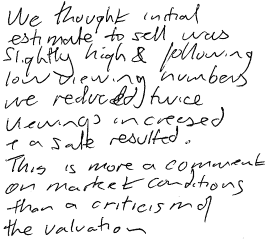 We thought initial
estimate to sell was
slightly high & following
low viewing numbers
we reduced twice
viewings increased
+ a sale resulted.
This is more a comment
on market conditions
than a criticism of
the valuation